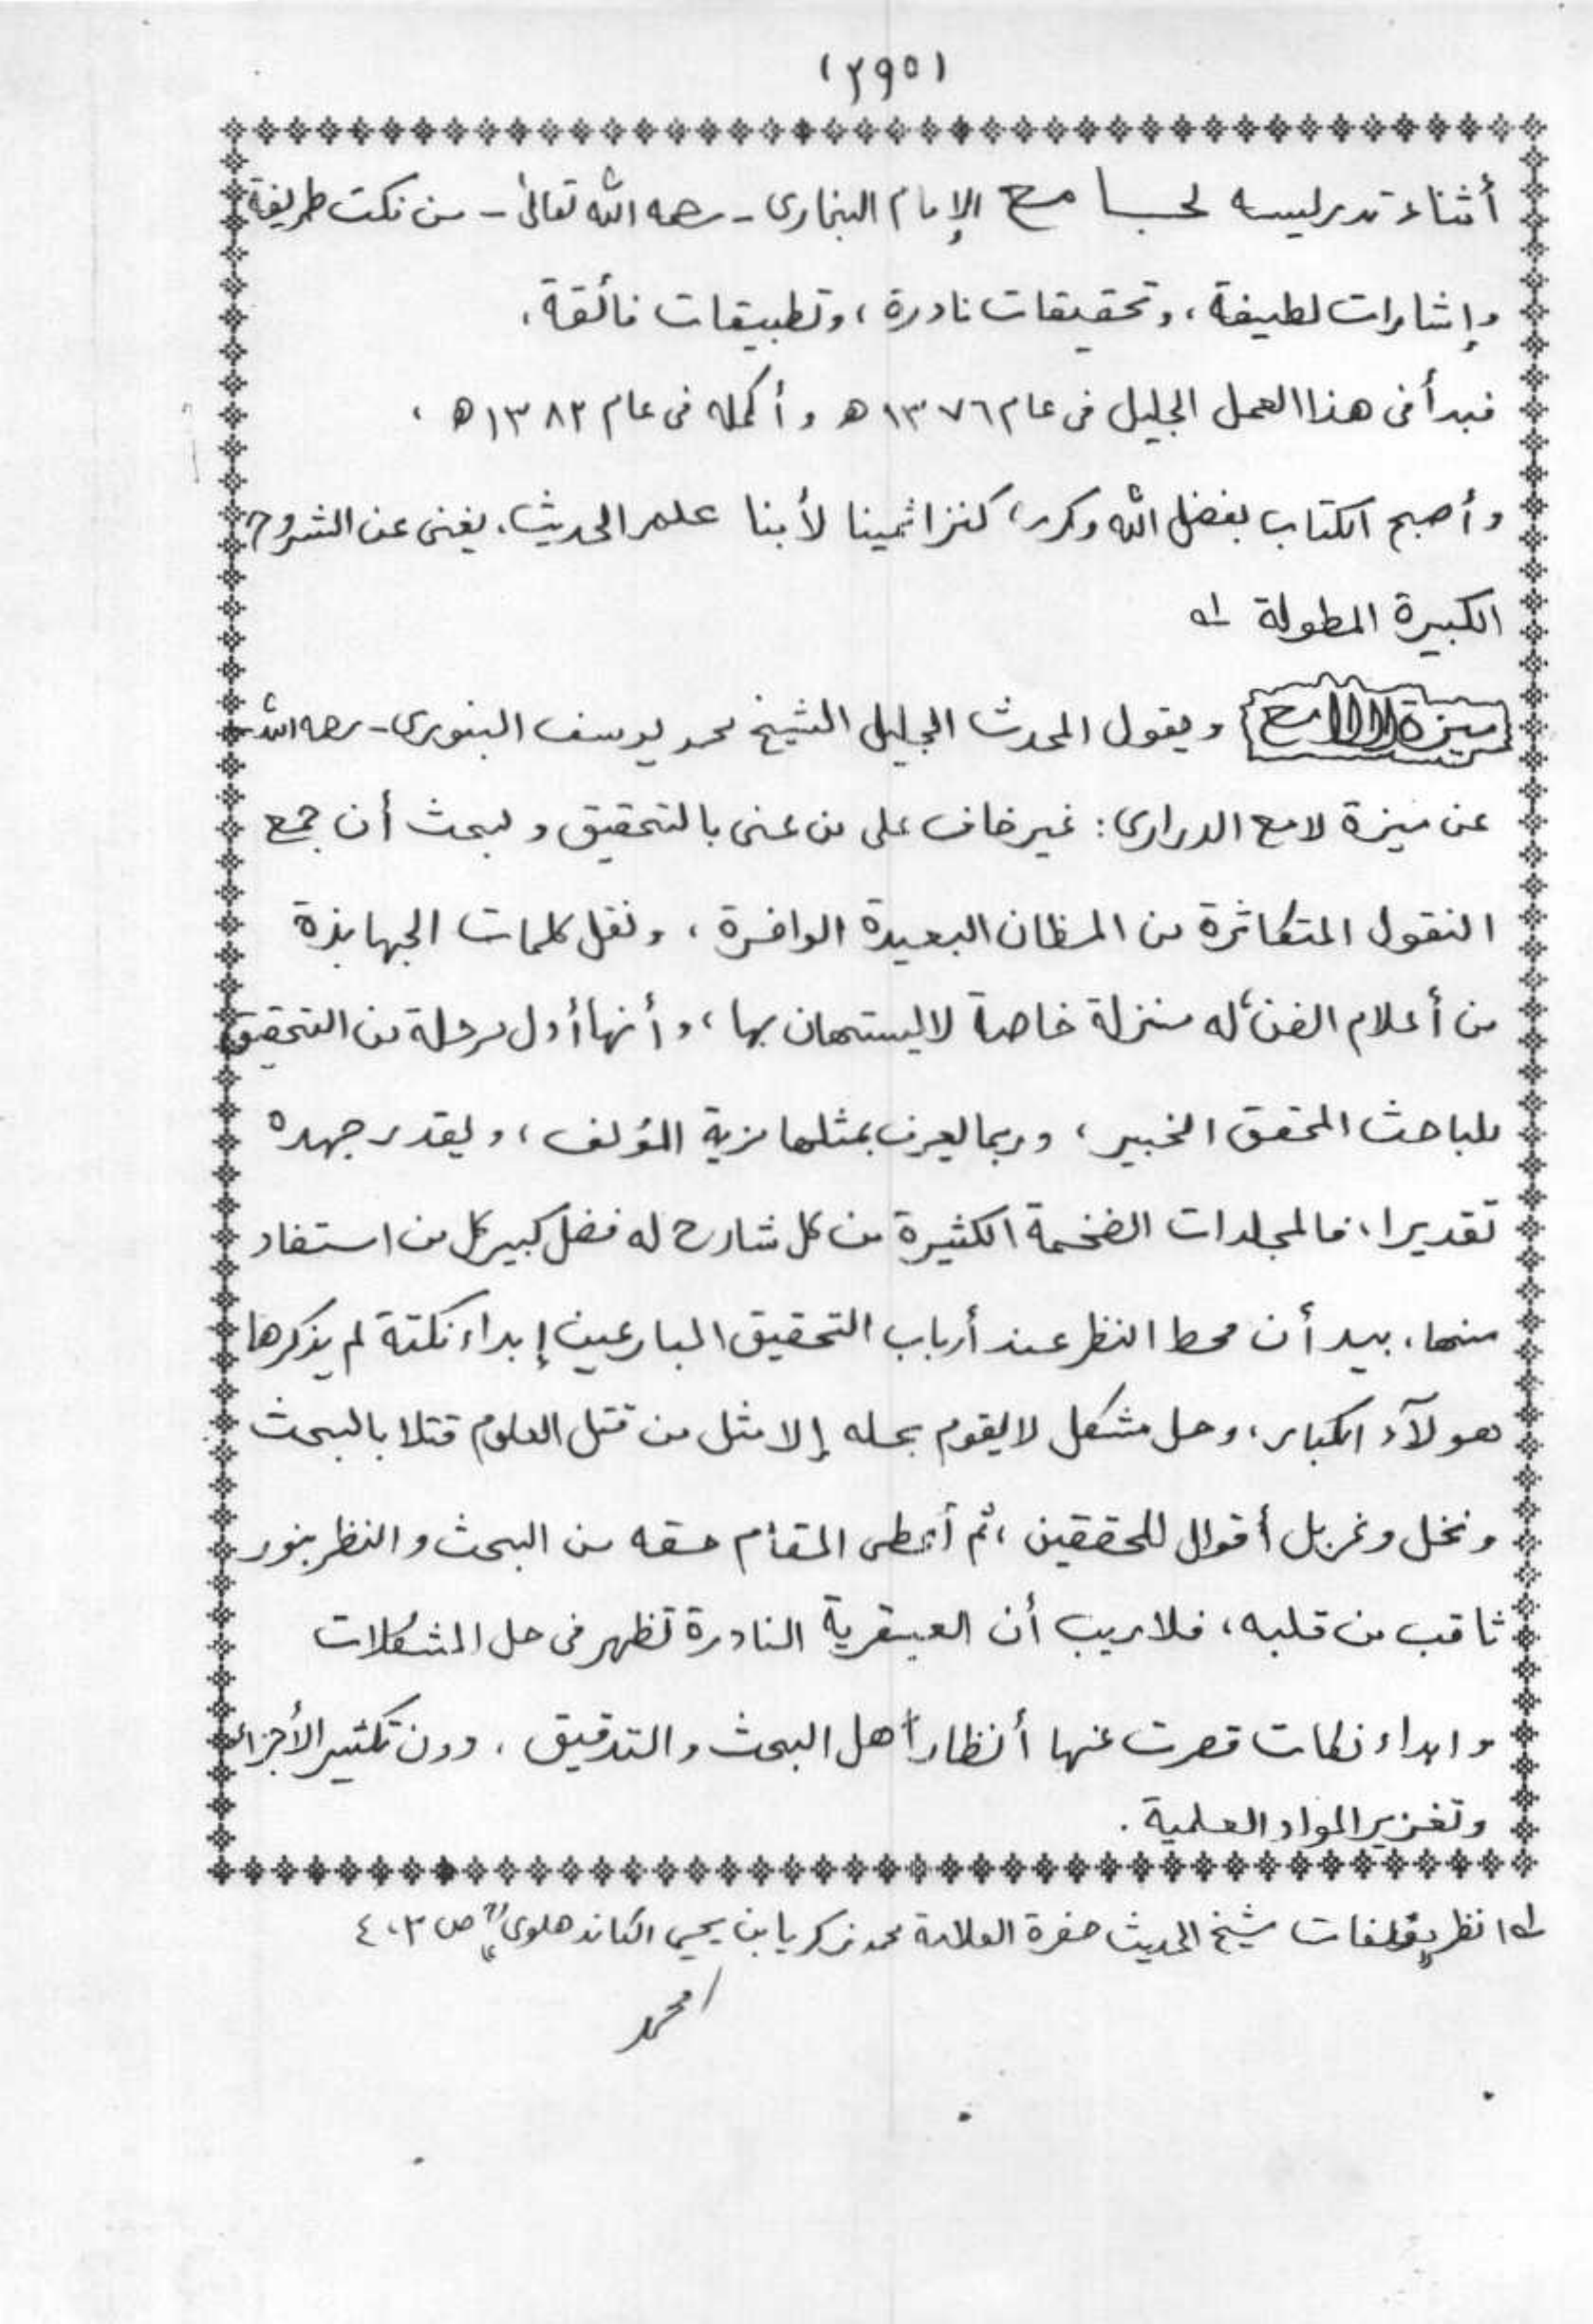 (٢٩٥)
أثناء تدريسه لجامع الإمام البخارى - رحمه الله تعالىٰ - من نكت طريفة
وإشارات لطيفة، وتحقيقات نادرة، وتطبيقات فائقة،
فبدأ فى هذا العمل الجليل فى عام ١٣٧٦ ه‍ وأكمله فى عام ١٣٨٢ ه‍ ،
وأصبح الكتاب بفضل الله وكرمه كنزا ثمينا لأبنا علم الحديث، يغنى عن الشروح
الكبيرة المطولة له
ميزة اللامع ويقول المحدث الجليل الشيخ محمد يوسف البنورى - رحمه الله -
عن ميزة لامع الدرارى: غير خاف على من عنى بالتحقيق و لبحث أن جمع
النقول المتكاثرة من المظان البعيدة الوافرة ، ونقل كلمات الجهابذة
من أعلام الفن، له منزلة خاصة لا يستهان بها، وأنها أول مرحلة من التحقيق
للباحث المحقق الخبير، وربما يعرف بمثلها مزية المؤلف، ويقدر جهده
تقديرا، فالمجلدات الضخمة الكثيرة من كل شارح له فضل كبير كل من استفاد
منها، بيد أن محط النظر عند أرباب التحقيق البارعين إبداء نكتة لم يذكرها
هولآء الكبار، وحل مشكل لا يقوم بحله إلا مثل من قتل العلوم قتلا بالبحث
ونخل وغربل أقوال للحققين، ثم أعطى المقام حقه من البحث والنظر بنور
ثاقب من قلبه، فلا ريب أن العبقرية النادرة تظهر فى حل المشكلات
وابداء نكات قصرت عنها أنظار أهل البحث والتدقيق . دون تكثير الأجزاء
وتغزير المواد العلمية .
له انظر شيخ الحديث حضرة العلامة محمد زكريا بن يحيى الكاندهلوى" ص ٤٠٣
/محمد